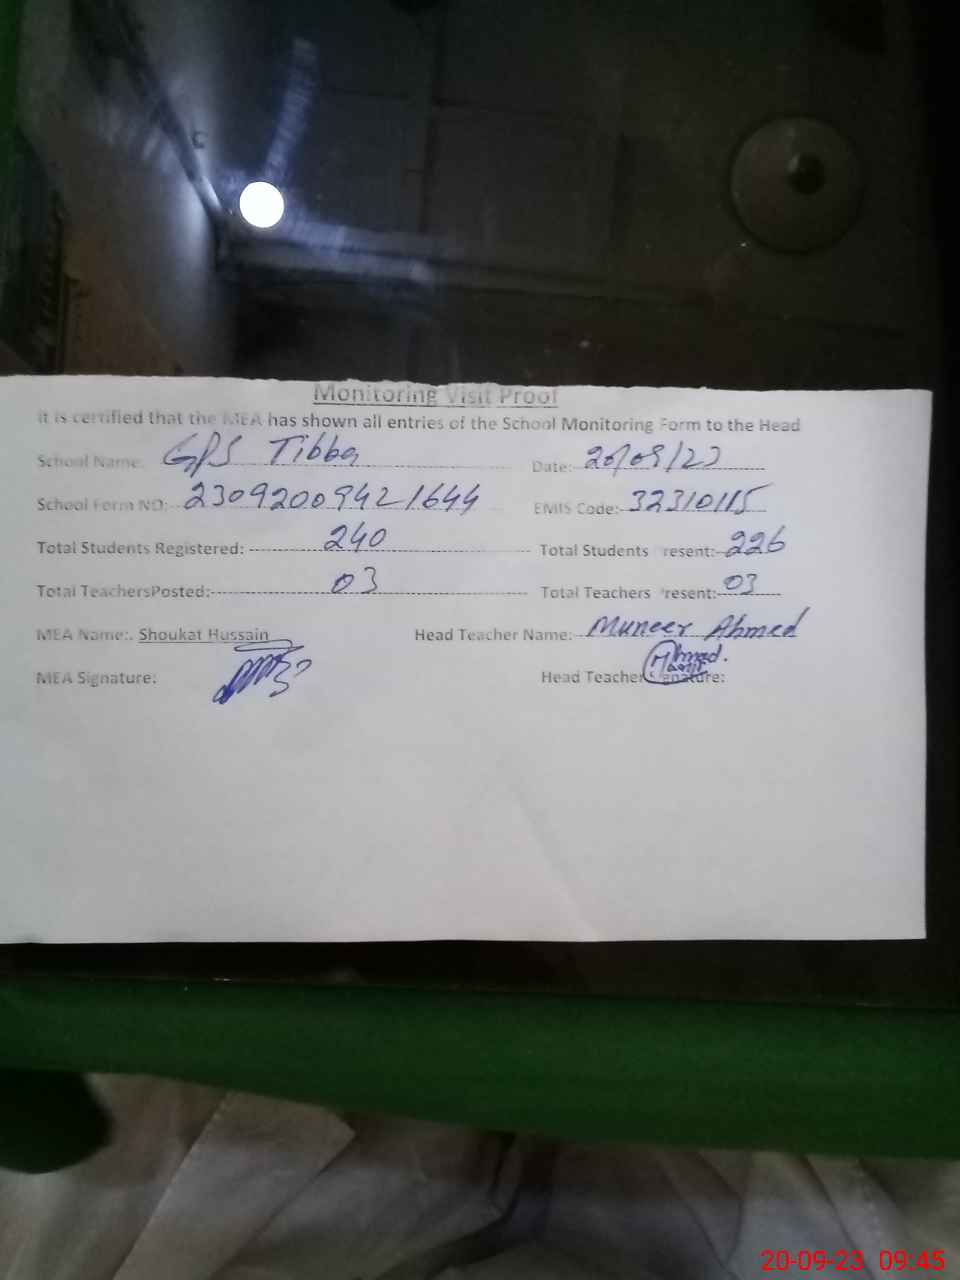 Monitoring Visit Proof
It is certified that the MEA has shown all entries of the School Monitoring Form to the Head
School Name: GPS Tibba Date: 20/09/23
School Form NO: 23092009421644 EMIS Code: 32310115
Total Students Registered: 240 Total Students Present: 226
Total TeachersPosted: 03 Total Teachers Present: 03
MEA Name:. Shoukat Hussain Head Teacher Name: Muneer Ahmed
MEA Signature: Head Teacher Signature: Ahmad.
20-09-23 09:45